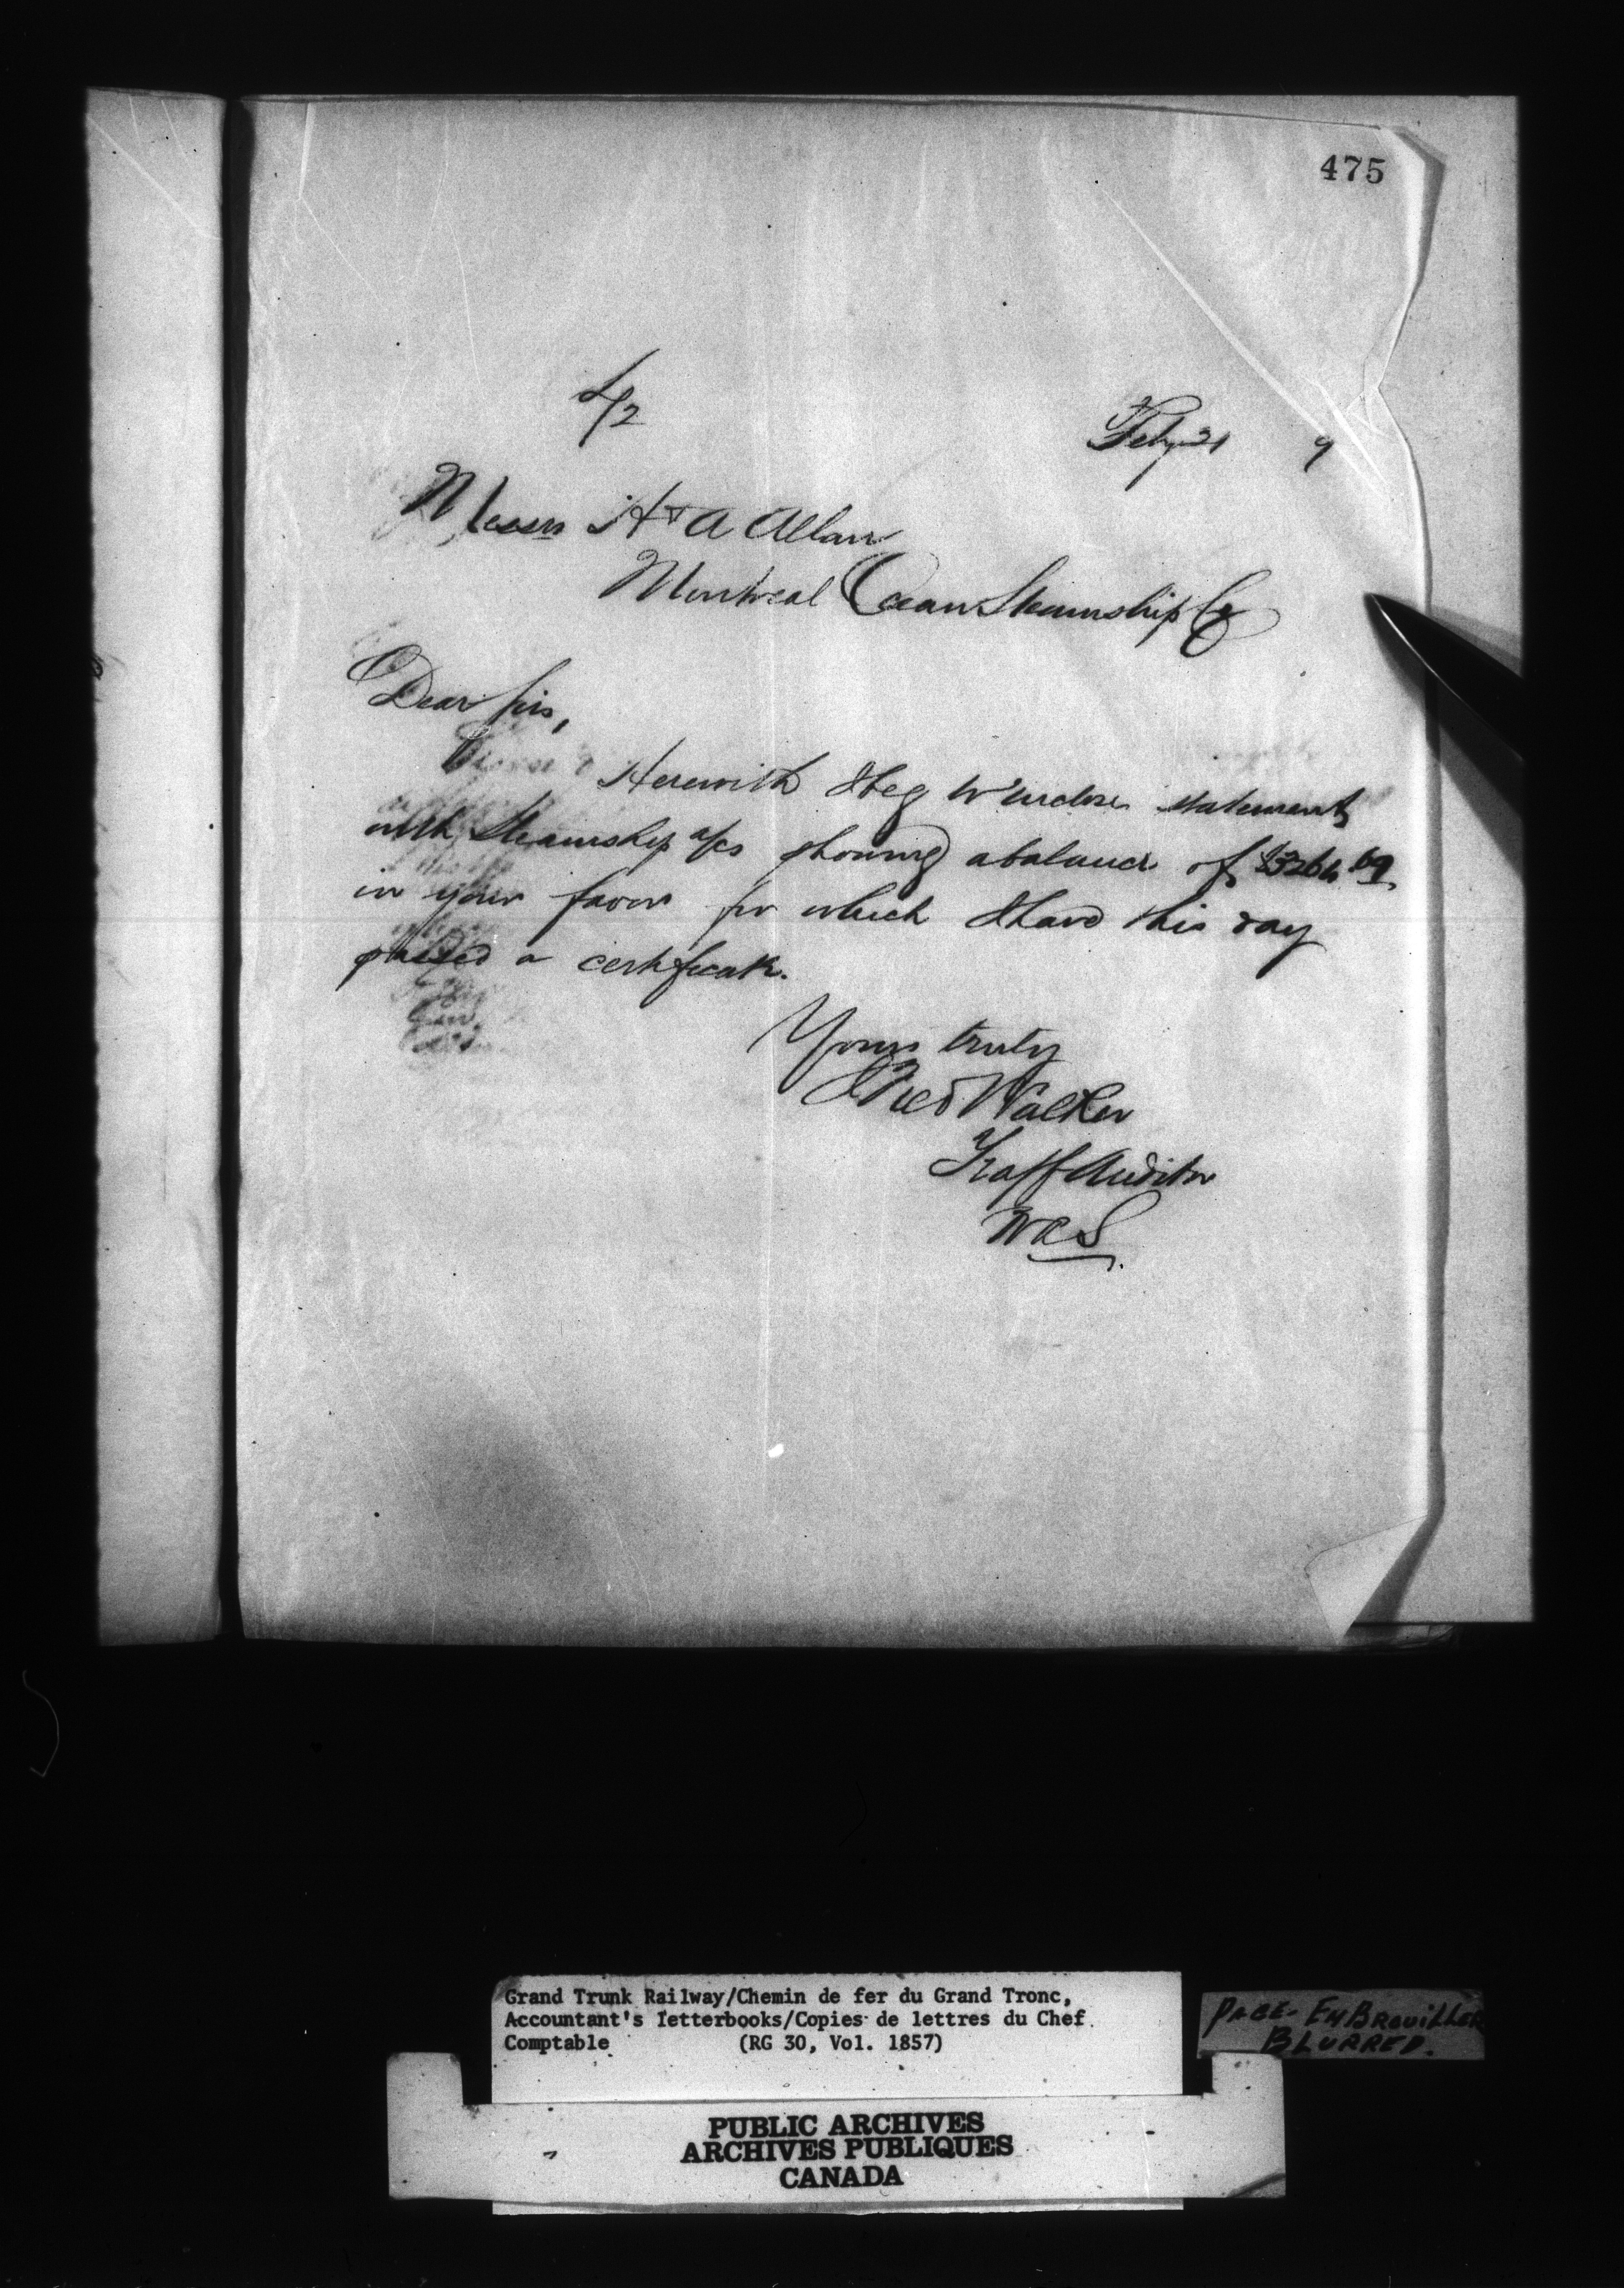 475
Feby 21 9
Messrs H & A Allan
Montreal Ocean Steamship Co
Dear Sirs,
Herewith I beg to enclose statement
with Steamship a/cs showing a balance of
in your favor for which I have this day
passed a certificate.
Yours truly
Walker
Traff Auditor
Grand Trunk Railway/Chemin de fer du Grand Tronc,
Accountant's letterbooks/Copies de lettres du Chef
Comptable (RG 30, Vol. 1857)
PAGE- EMBROUILLER
BLURRED.
PUBLIC ARCHIVES
ARCHIVES PUBLIQUES
CANADA